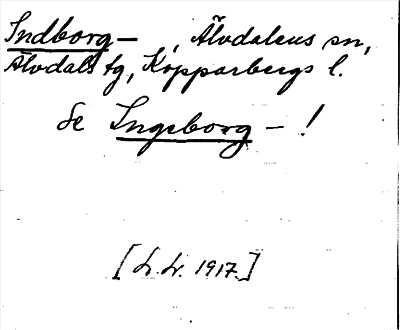 Indborg – , Älvdalens sn,
Älvdals tg, Kopparbergs l.
Se Ingeborg – !
[L. Lr. 1917.]